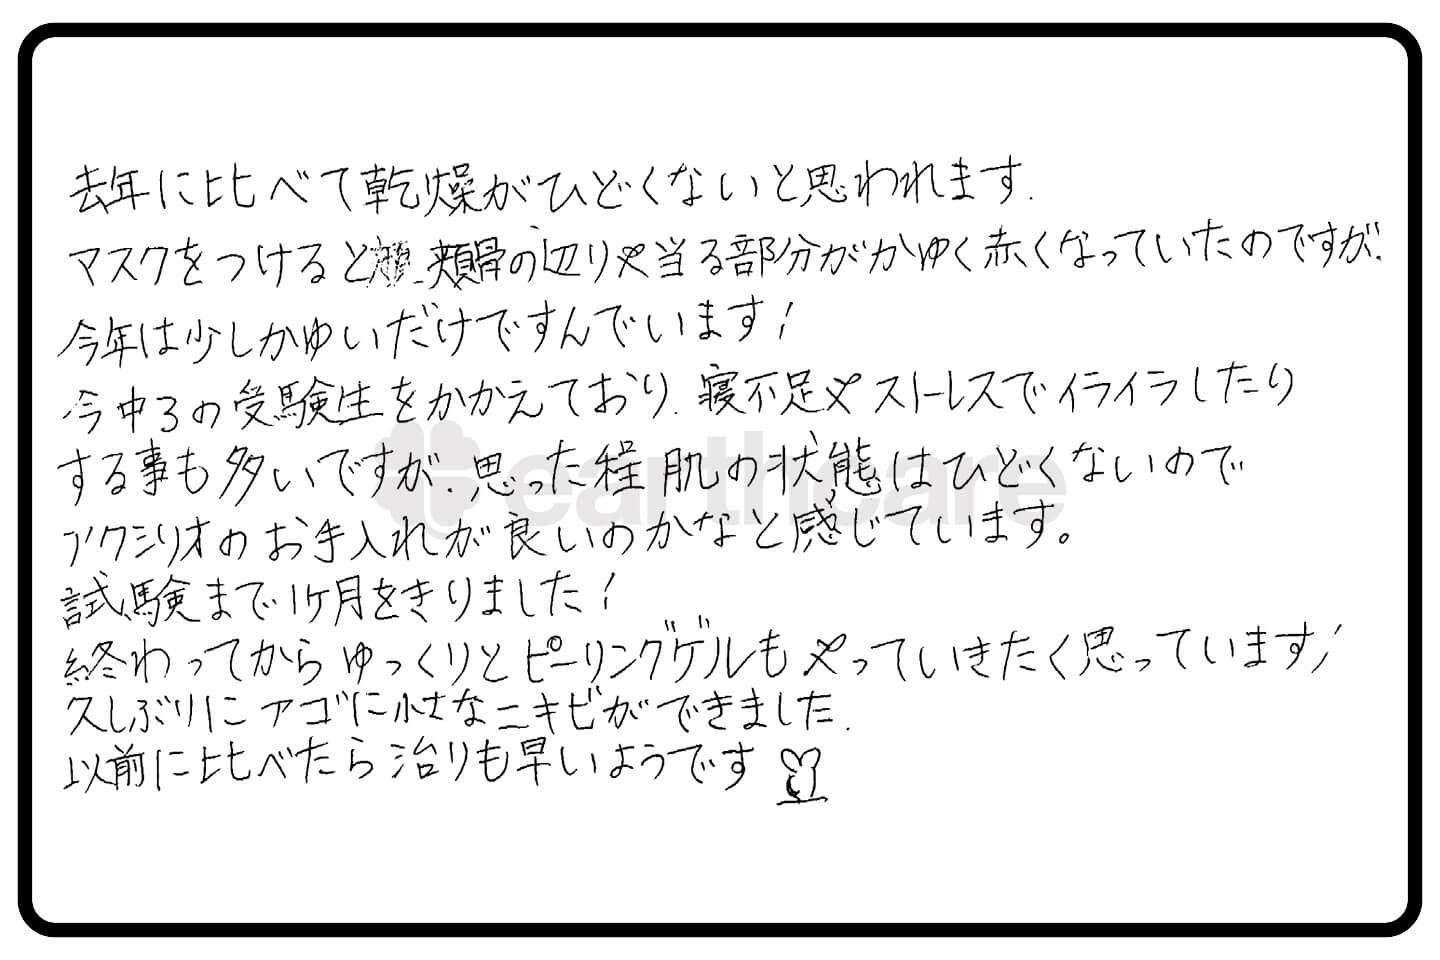 去年に比べて乾燥がひどくないと思われます.
マスクをつけると 頬骨の辺りや当る部分がかゆく赤くなっていたのですが、
今年は少しかゆいだけですんでいます!
今中3の受験生をかかえており、寝不足やストレスでイライラしたり
する事も多いですが、思った程肌の状態はひどくないので
アクシリオのお手入れが良いのかなと感じています。
試験まで1ヶ月をきりました!
終わってからゆっくりとピーリングゲルもやっていきたく思っています!
久しぶりにアゴに小さなニキビができました.
以前に比べたら治りも早いようです
earthcare